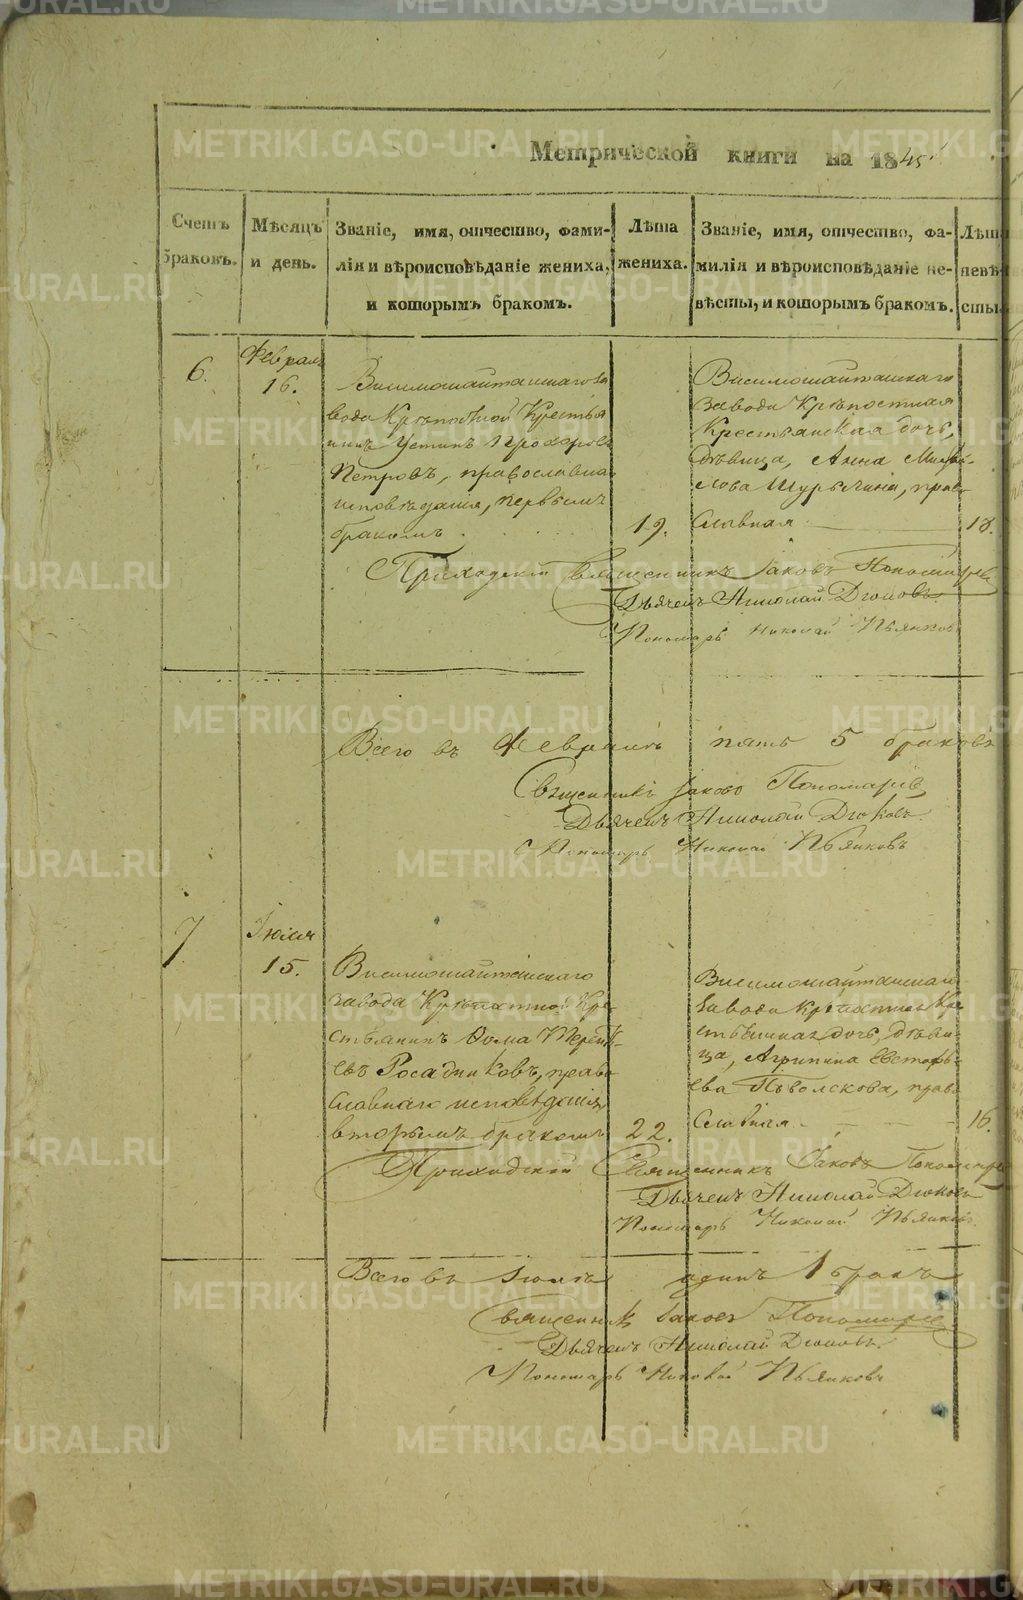 Метрической книги на 1845
Счетъ браковъ.
Мѣсяцъ и день.
Званіе, имя, отчество, фами-
лія и вѣроисповѣданіе жениха,
и которымъ бракомъ.
Лѣта
жениха.
Званіе, имя, отчество, фа-
милія и вѣроисповѣданіе не-
вѣсты, и которымъ бракомъ.
Лѣта
невѣ-
сты.
6.
Февраля
16.
Висимошайтанскаго за
вода Крѣпостной Крестья
нинъ Устинъ Прохоровъ
Петровъ, православна
исповѣданія, первымъ
бракомъ.
19.
Висимошайтанскаго
Завода Крѣпостная
Крестьянская дочь,
Дѣвица, Анна Михай-
лова, прав
славная
18.
Приходскій Священникъ Іаковъ Пономаревъ
Дьячекъ Николай Дюковъ
Пономарь Николай Пьянковъ
Всего въ Февралѣ пять 5 браковъ
Священникъ Іаковъ Пономаревъ
Дьячекъ Николай Дюковъ.
Пономарь Николай Пьянковъ
7
Іюля
15.
Висимошайтанскаго
завода Крѣпостной Кре
стьянинъ Фома Терент
евъ Росадниковъ, право
славнаго исповѣданія,
вторымъ бракомъ
22.
Висимошайтанскаго
Завода Крѣпостная Кре
стьянская дочь, дѣви-
ца, Агрипина
ева, прав
славная
16.
Приходскій Священникъ Іаковъ Пономаревъ
Дьячекъ Николай Дюковъ
Пономарь Николай Пьянковъ.
Всего въ Іюлѣ одинъ 1 бракъ
Священникъ Іаковъ Пономаревъ
Дьячекъ Николай Дюковъ.
Пономарь Николай Пьянковъ
METRIKI.GASO-URAL.RU